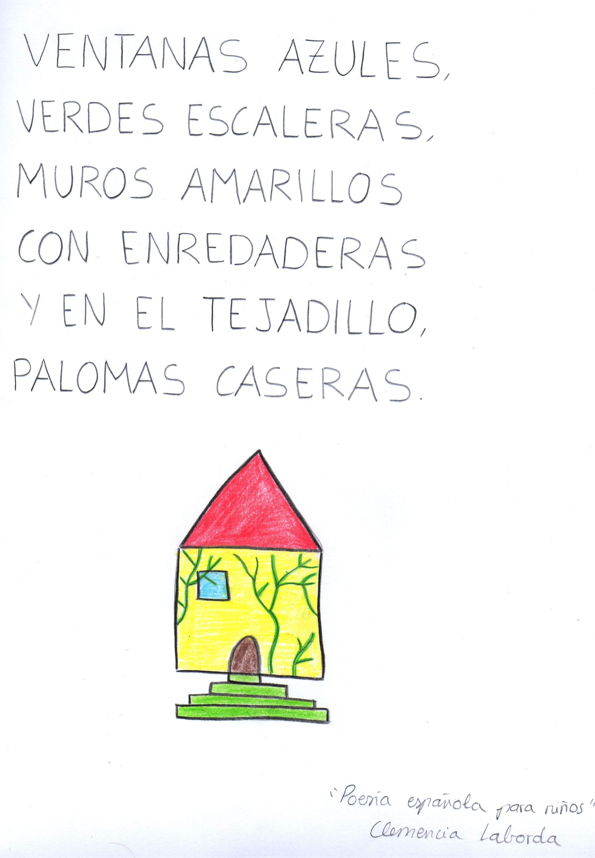 VENTANAS AZULES,
VERDES ESCALERAS,
MUROS AMARILLOS
CON ENREDADERAS
Y EN EL TEJADILLO,
PALOMAS CASERAS.
"Poesía española para niños"
Clemencia Laborda